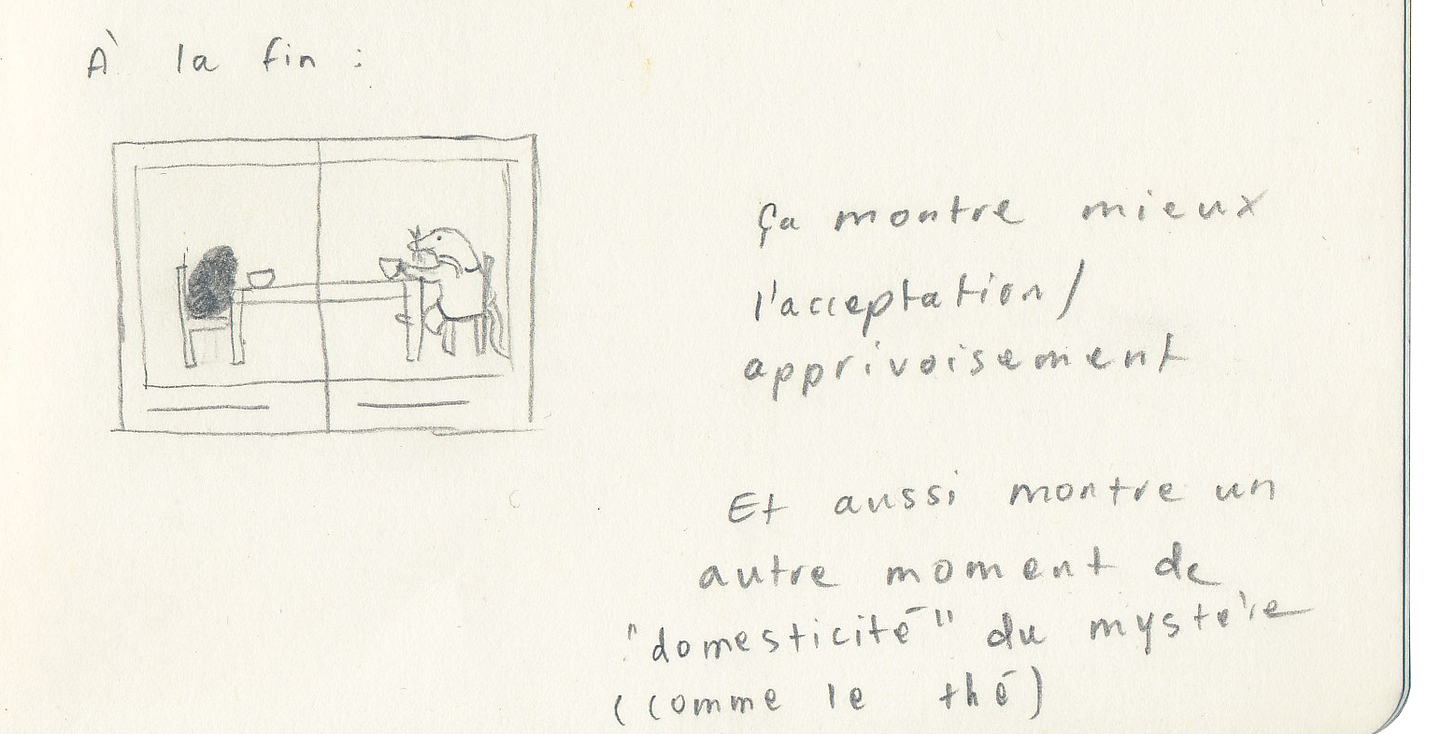 À la fin :
Ça montre mieux
l'acceptation/
apprivoisement
Et aussi montre un
autre moment de
"domesticité" du mystère
(comme le thé)